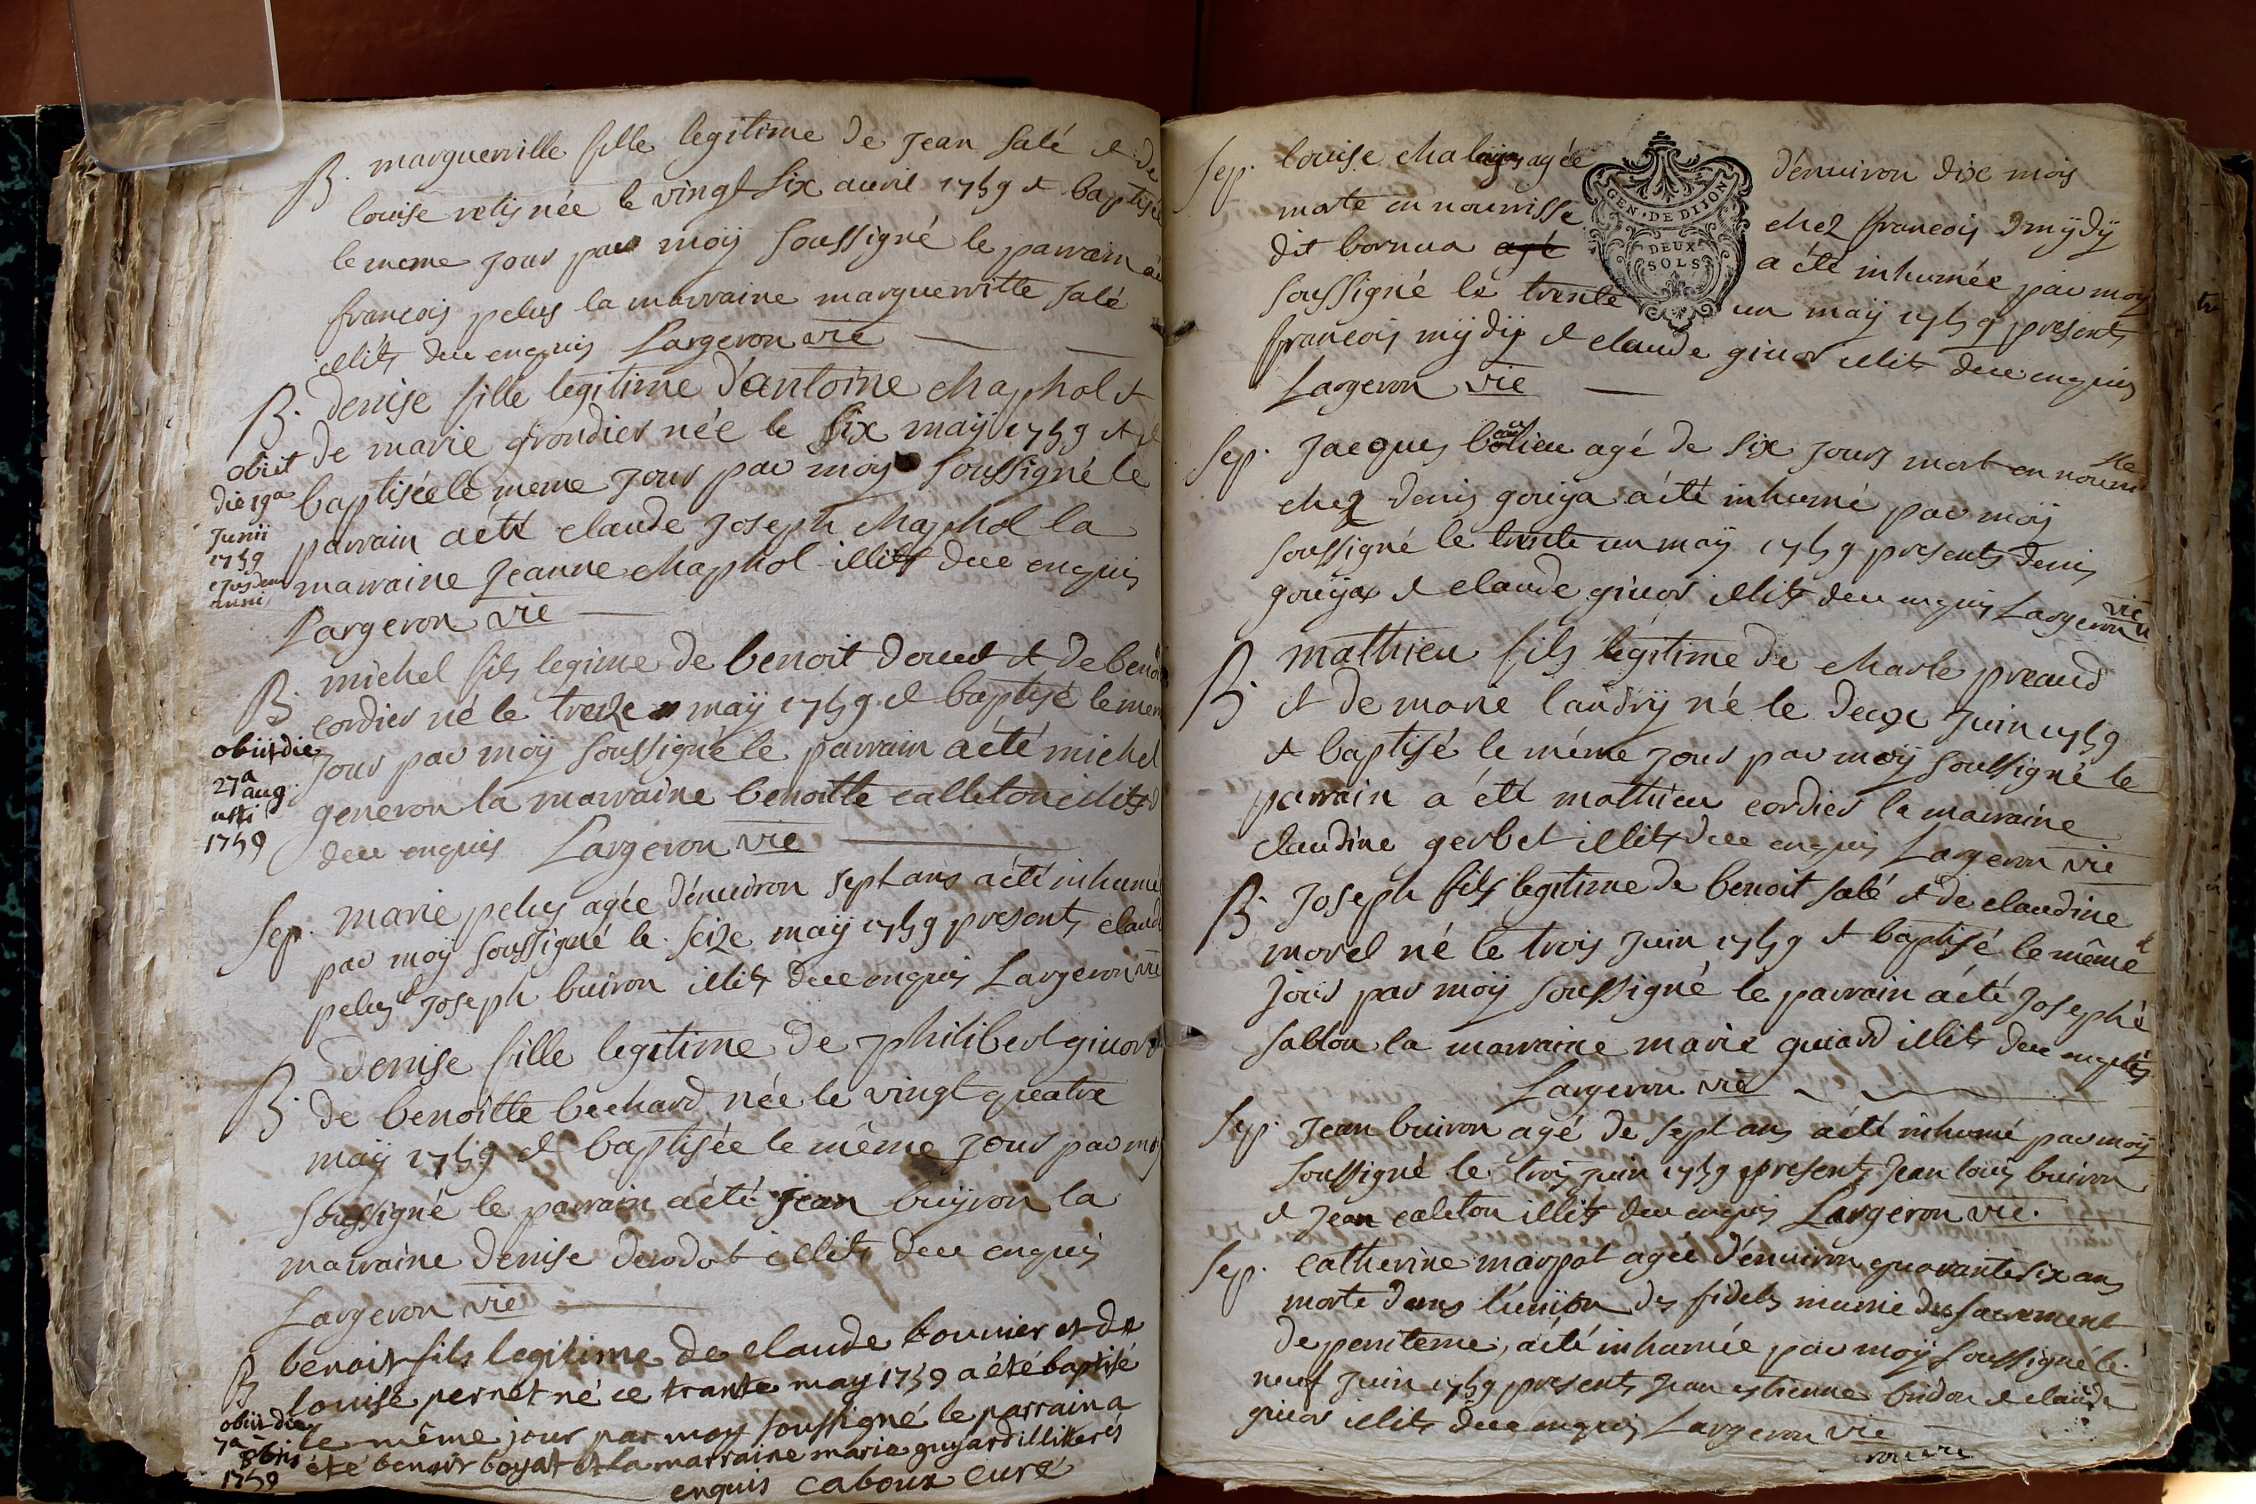 B. marguerritte fille legitime de jean salé et de
louise retis née le vingt six avril 1759 et baptisée
le meme jour par moÿ soussigné le parrain a été
francois pelus la marraine marguerritte salé
illits deue enquis Largeron vie
B. denise fille legitime d'antoine chaphol et
de marie grondier née le six maÿ 1759 et
baptisée le meme jour par moy soussigné le
parrain a été claude joseph chaphol la
marraine jeanne chaphol illits deue enquis
Largeron vie
obiit
die 19a
junii
1759
ejusdem
anni
B. michel fils legime de benoit doued et de benoitte
cordier né le treize maÿ 1759 et baptisé le meme
jour par moÿ soussigné le parrain a été michel
generon la marraine benoitte calleton illits
deue enquis Largeron vie
obiit die
27a
aug
usti
1759
Sep. marie pelus agée d'environ sept ans a été inhumée
par moÿ soussigné le seize maÿ 1759 presents claude
pelus et joseph buiron illits deue enquis Largeron vie
B. denise fille legitime de philibert givors
de benoitte bechard née le vingt quatre
maÿ 1759 et baptisée le même jour par moÿ
soussigné le parrain a été jean buÿron la
marraine denise deudot illits deue enquis
Largeron vie
B benoit fils legitime de claude bouvier et de
louise pernet né ce trante may 1759 a été baptisé
le même jour par moy soussigné le parrain a
été benoit boyat et la marraine marie guyard illitterés
enquis caboux curé
obiit die
7a
8bris
1759
Sep. louise agée d'environ dix mois
morte en nourrisse chez francois Dmÿdÿ
dit bornua agé a été inhumée par moy
soussigné le trente un maÿ 1759 presents
francois mÿdÿ et claude givor illits deue enquis
Largeron vie
GEN · DE DIJON
DEUX
SOLS
Sep. jacques agé de six jours mort en nourrisse
chez denis gouÿa a été inhumé par moÿ
soussigné le trente un maÿ 1759 presents denis
gouÿa et claude givor illits deue enquis Largeron vie
B. mathieu fils légitime de charle preaud
et de marie landrÿ né le deux juin 1759
et baptisé le même jour par moÿ soussigné le
parrain a été mathieu cordier la marraine
claudine gerbet illits deue enquis Largeron vie
B. joseph fils legitime de benoit salé et de claudine
morel né le trois juin 1759 et baptisé le même
jour par moÿ soussigné le parrain a été joseph
sablon la marraine marie guiard illits deue enquis
Largeron vie
Sep. jean buiron agé de sept ans a été inhumé par moÿ
soussigné le trois juin 1759 presents jean louis buiron
et jean caleton illits deue enquis Largeron vie.
Sep. catherine marpot agée d'environ quarante six ans
morte dans l'union des fideles munie du sacrement
de penitence, a été inhumée par moÿ soussigné le
neuf juin 1759 presents jean etienne budon et claude
givor illits deue enquis Largeron vie